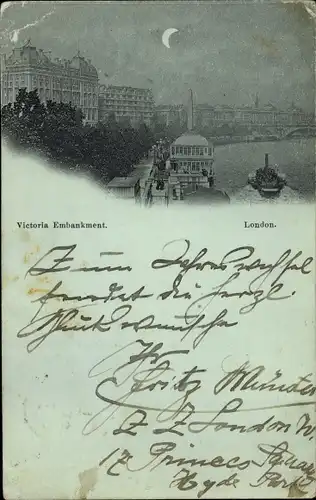 Victoria Embankment. London.
Zum Jahreswechsel
sendet die herzl.
Glückwünsche
Ihr
Fritz Münster
Z Z London W.
17 Princes Square
Hyde Park